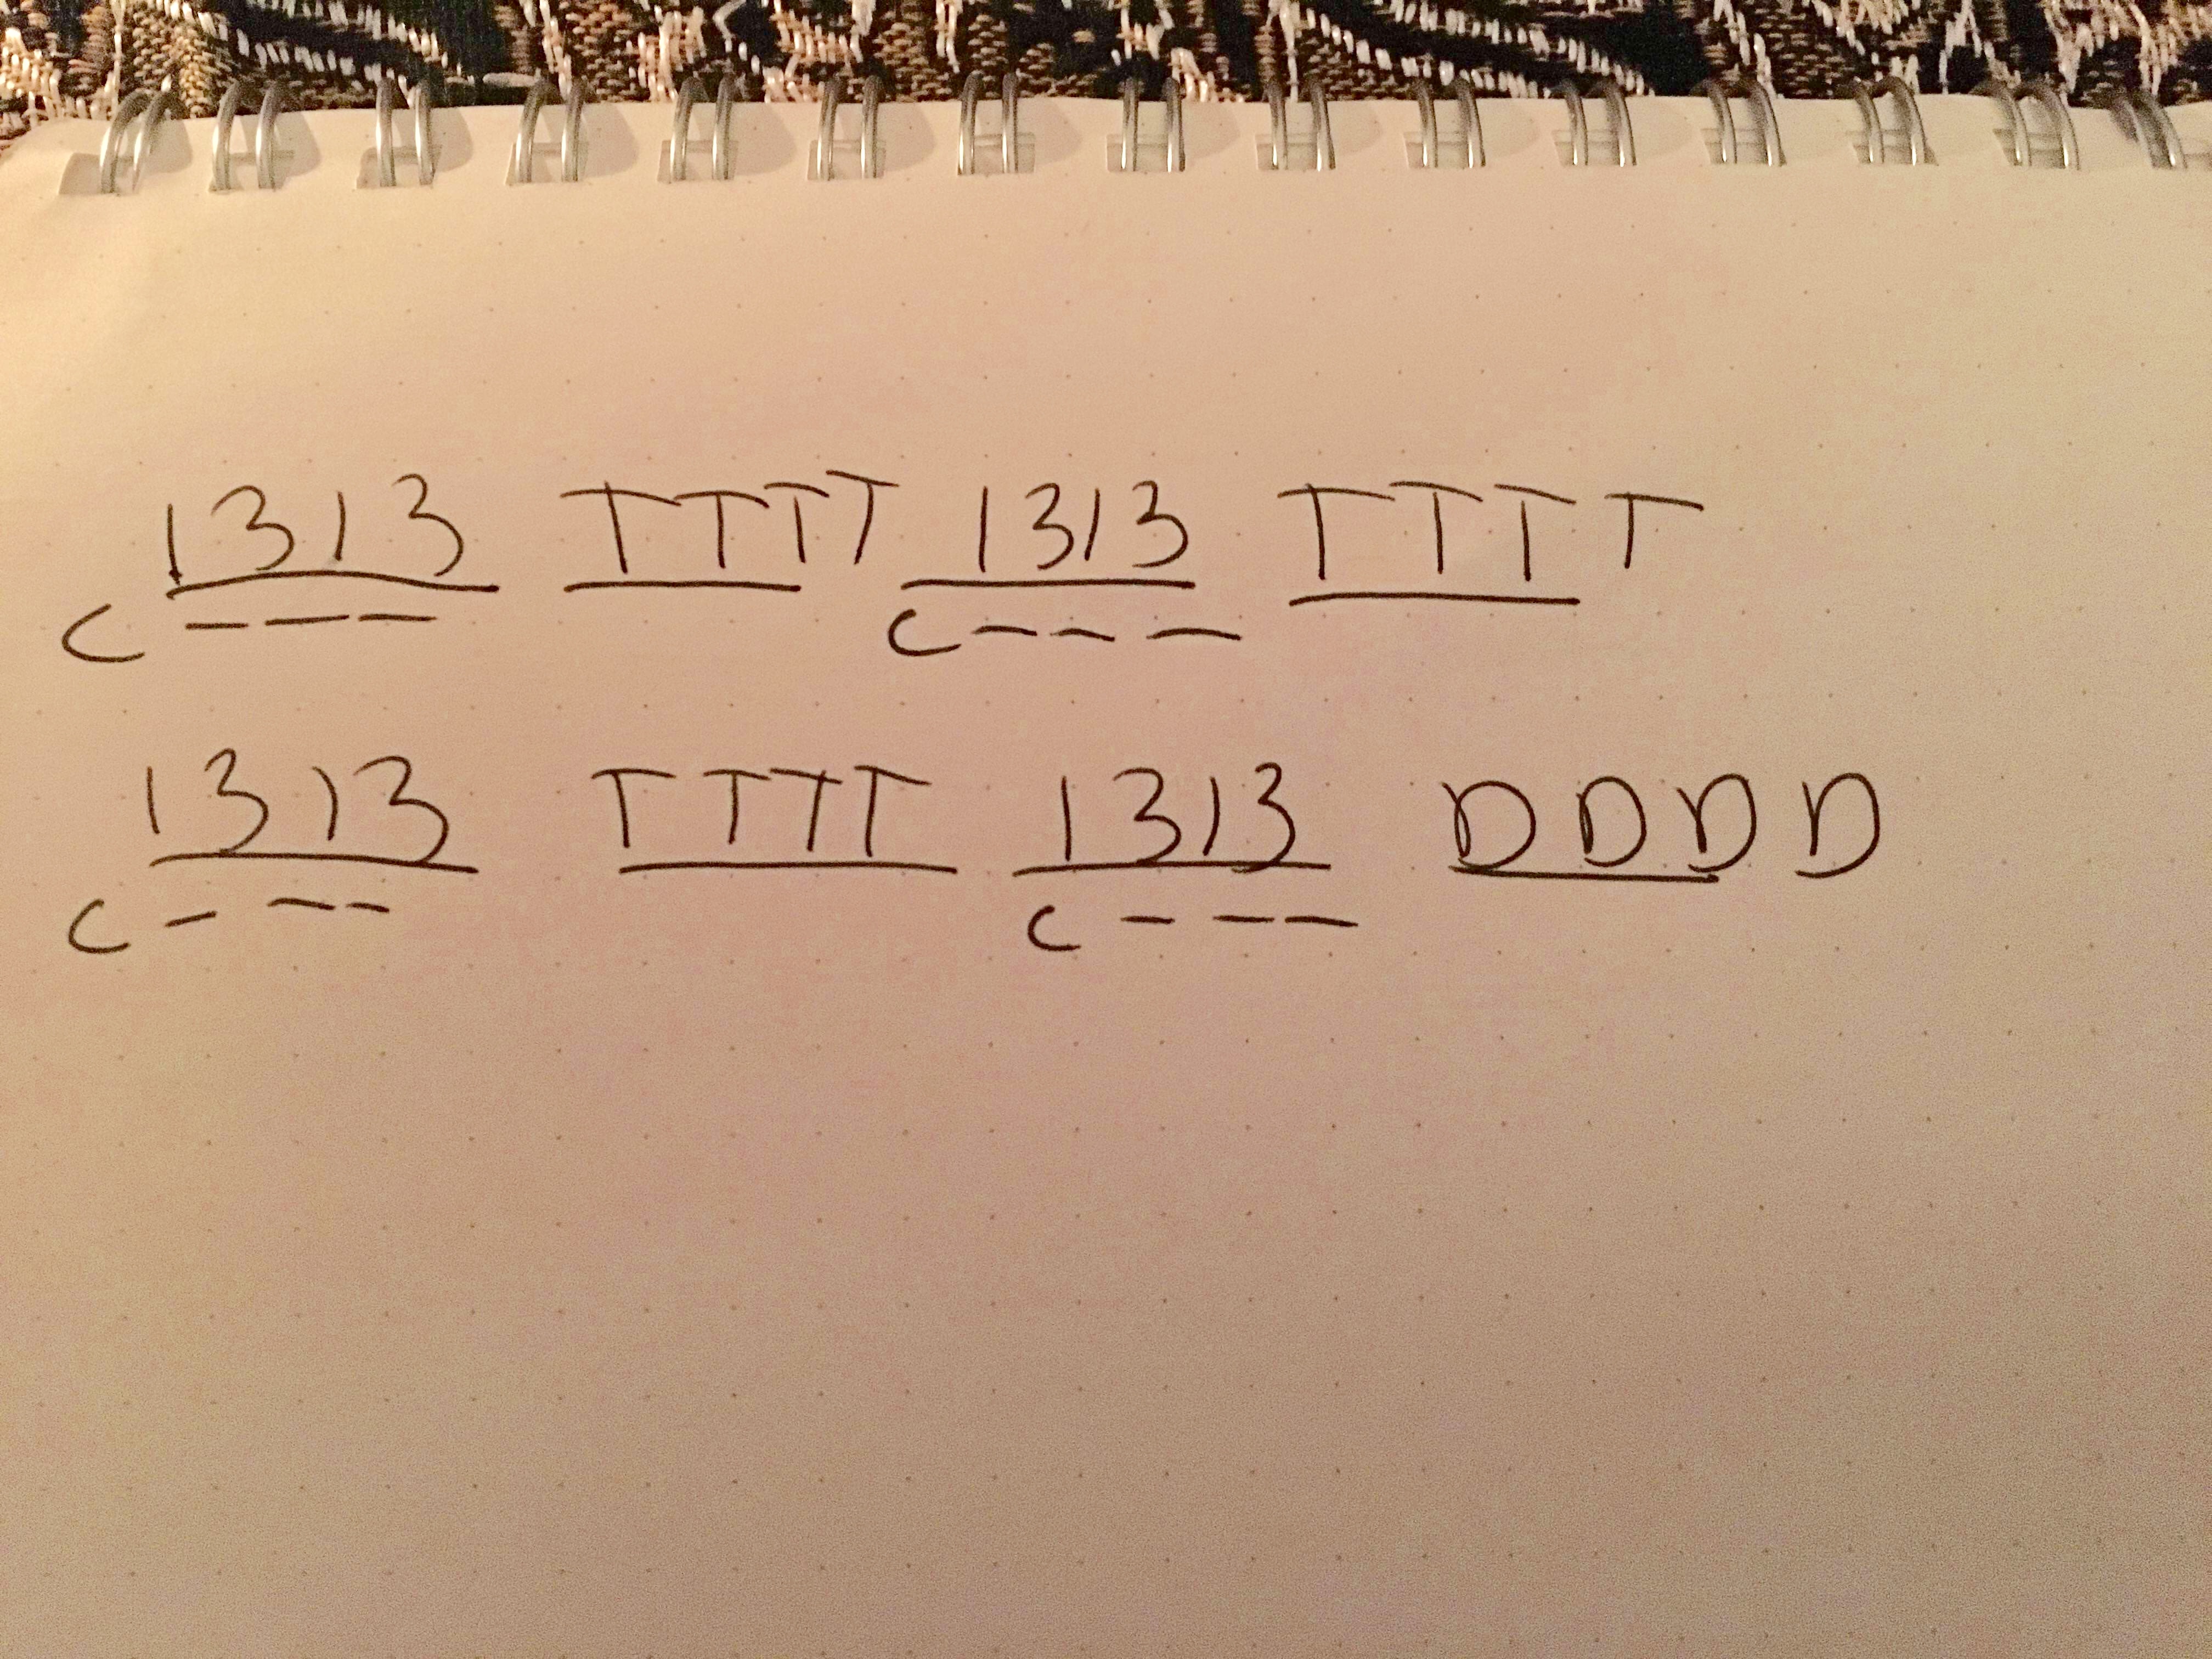 1313 TTTT 1313 TTTT
C – – – C – – –
1313 TTTT 1313 DDDD
C – – – C – – –